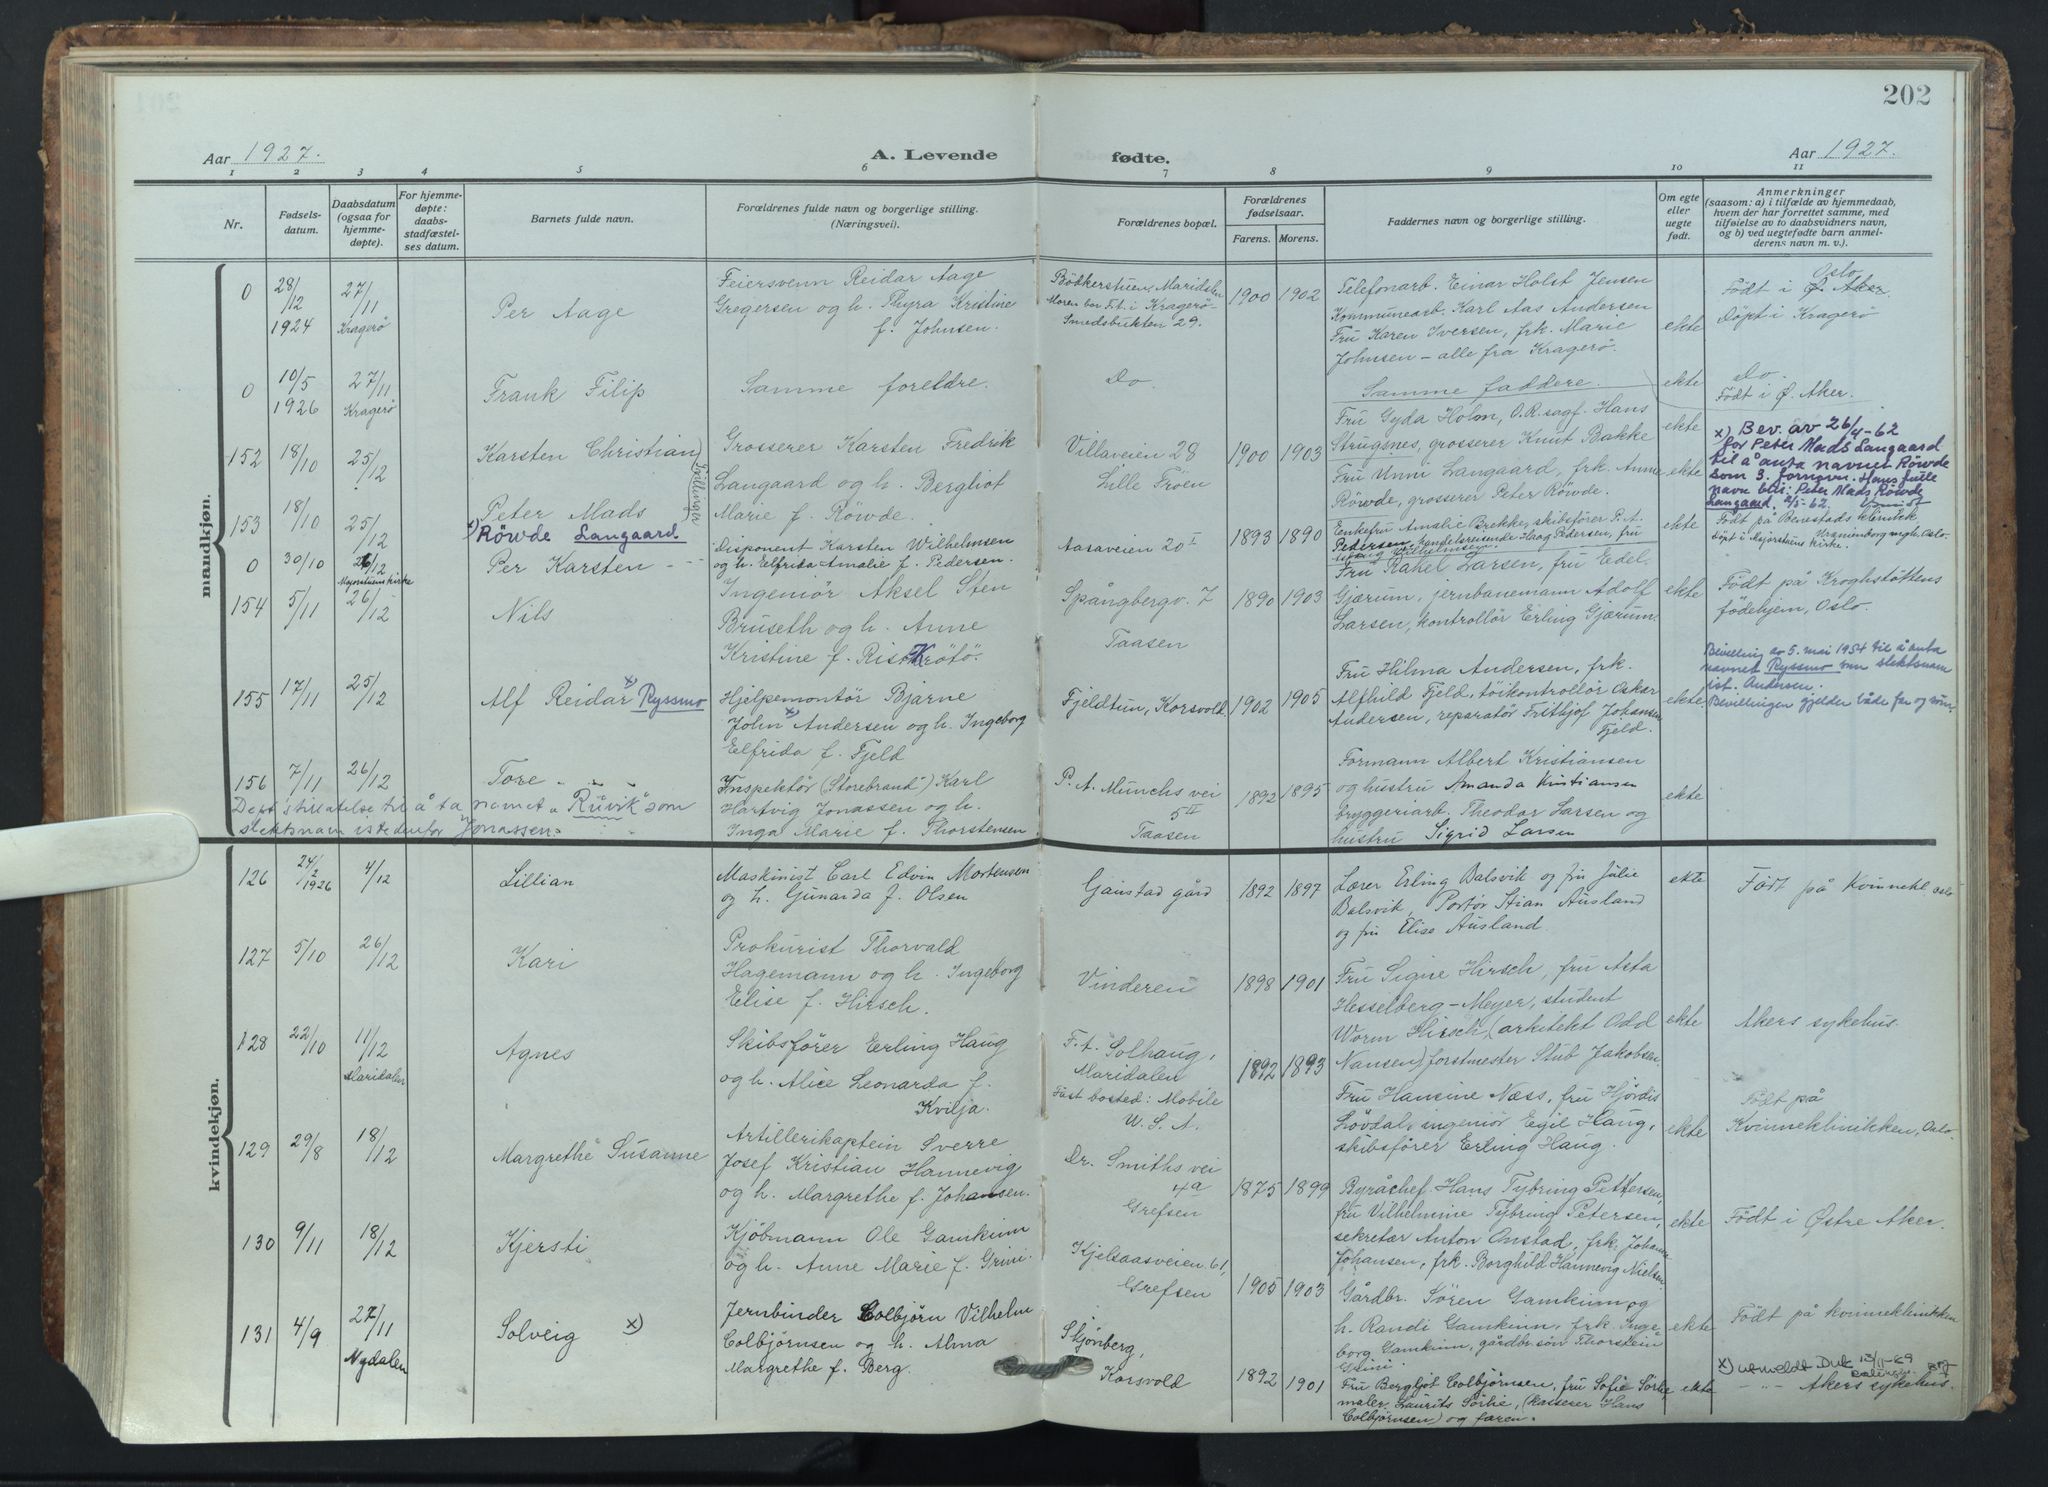 202
Aar 1927.
A. Levende fødte.
Aar 1927.
1 2 3 4 5 6 7 8 9 10 11
Nr.
Fødsels-
datum.
Daabsdatum
(ogsaa for
hjemme-
døpte).
For hjemme-
døpte:
daabs-
stadfæstel-
ses datum.
Barnets fulde navn.
Forældrenes fulde navn og borgerlige stilling.
(Næringsvei).
Forældrenes bopæl.
Forældrenes
fødselsaar.
Farens. Morens.
Faddernes navn og borgerlige stilling.
Om egte
eller
uegte
født.
Anmerkninger
(saasom: a) i tilfælde av hjemmedaab,
hvem der har forrettet samme, med
tilføielse av to daabsvidners navn,
og b) ved uegtefødte barn anmel-
derens navn m. v.).
mandkjøn.
0
28/12
1924
27/11
Kragerö
Per Aage
Feiersvenn Reidar Aage
Gregersen og h. Thyra Kristine
f. Johnsen.
Bödkerstuen, Maridalen
Moren bor F.t. i Kragerö
Smedsbukten 29.
1900 1902
Telefonarb. Einar Holst Jensen
Kommunearb. Karl Aas Andersen
Fru Karen Iversen, frk. Marie
Johnsen - alle fra Kragerö.
ekte
Oslo
Født i Ø. Aker
Døpt i Kragerö
0
10/5
1926
27/11
Kragerö
Frank Filip
Samme foreldre.
Do.
Samme faddere.
ekte
Do.
Født i Ø. Aker.
152
18/10
25/12
Karsten Christian
Tvillinger
Grosserer Karsten Fredrik
Langaard og h. Bergliot
Marie f. Röwde.
Villaveien 28
Lille Fröen
1900 1903
Fru Gyda Holm, O.R.sagf. Hans
Strugsnes, grosserer Knut Bakke
ekte
Fru Unni Langaard, frk. Anne
Röwde, grosserer Peter Röwde.
ekte
x) Bev. av 26/4-62
for Peter Mads Langaard
til å anta navnet Röwde
som 3. fornavn. Hans fulle
navn blir: Peter Mads Röwde
Langaard. 2/5-62.
153
18/10
25/12
Peter Mads
x) Röwde Langaard
0
30/10
26/12
Majorstuens kirke
Per Karsten
Disponent Karsten Wilhelmsen
og h. Elfrida Amalie f. Pedersen.
Aasaveien 20 I
1893 1890
Enkefru Amalie Brekke, skibsfører P. A.
Pedersen, handelsreisende Haag Pedersen, fru
Wilhelmsen.
ekte
Født på Benestads klinikk
Døpt i Majorstuens kirke.
154
5/11
26/12
Nils
Ingeniör Aksel Sten
Bruseth og h. Anne
Kristine f. Ris
Spångbergv. 7
Taasen
1890 1903
Fru Rakel Larsen, fru Edel
Gjærum, jernbanemann Adolf
Larsen, kontrollör Erling Gjærum.
ekte
Født på Kroghstöttens
födehjem, Oslo.
155
17/11
25/12
Alf Reidar x) Ryssmo
Hjelpemontör Bjarne
John x) Andersen og h. Ingeborg
Elfrida f. Fjeld
Fjeldtun, Korsvold
1902 1905
Fru Hilma Andersen, frk.
Alfhild Fjeld, töikontrollör Oskar
Andersen, reparatör Frithjof Johansen
Fjeld.
ekte
Bevilling av 5. mai 1954 til å anta
navnet Ryssmo som slektsnavn
ist. Andersen.
Bevillingen gjelder både far og sönn.
156
7/11
26/12
Tore
Inspektör ("Storebrand") Karl
Hartvig Jonassen og h.
Inga Marie f. Thorstensen
P. A. Munchs vei
5 II
Taasen
1892 1895
Formann Albert Kristiansen
og hustru Amanda Kristiansen
bryggeriarb. Theodor Larsen og
hustru Sigrid Larsen
ekte
Dept's tillatelse til å ta navnet "Rüvik" som
slektsnavn istedenfor Jonassen.
kvindekjøn.
126
24/2
1926
4/12
Lillian
Maskinist Carl Edvin Mortensen
og h. Gunarda f. Olsen
Gaustad gård
1892 1897
Lærer Erling Balsvik og fru Julie
Balsvik, Portör Stian Ausland
og fru Elise Ausland.
ekte
Født på Kvinnekl. Oslo
127
5/10
26/12
Kari
Prokurist Thorvald
Hagemann og h. Ingeborg
Elise f. Hirsch.
Vinderen
1898 1901
Fru Signe Hirsch, fru Asta
Hesselberg-Meyer, student
Worm Hirsch, (arkitekt Odd
Nansen) forstmester Stub Jakobsen
ekte
Akers sykehus.
128
22/10
11/12
Maridalen
Agnes
Skibsförer Erling Haug
og h. Alice Leonarda f.
Kvilja.
F.t. Solhaug,
Maridalen
Fast bosted: Mobile
U. S. A.
1892 1893
Fru Hansine Næss, fru Hjördis
Lövdal, ingeniör Egil Haug,
skibsförer Erling Haug.
ekte
Født på
Kvinneklinikken, Oslo.
129
29/8
18/12
Margrethe Susanne
Artillerikaptein Sverre
Josef Kristian Hannevig
og h. Margrethe f. Johansen.
Dr. Smiths vei
4a
Grefsen
1875 1899
Byråchef Hans Tybring Pettersen,
fru Vilhelmine Tybring Petersen,
sekretær Anton Onstad, frk. Johanne
Johansen, frk. Borghild Hannevig Nielsen
ekte
Født i Østre Aker.
130
9/11
18/12
Kjersti
Kjöbmann Ole Gamkinn
og h. Anne Marie f. Grini.
Kjelsaasveien 61,
Grefsen
1905 1903
Gårdbr. Sören Gamkinn og
h. Randi Gamkinn, frk. Inge
borg Gamkinn, gårdbr.sön Thorstein
Grini.
ekte
Født på kvinneklinikken
131
4/9
27/11
Nydalen
Solveig x)
Jernbinder Colbjörn Vilhelm
Colbjörnsen og h. Alma
Margrethe f. Berg.
Skjönberg,
Korsvold
1892 1901
Fru Bergljot Colbjörnsen, fru Sofie Sörlie
maler Laurits Sörlie, (kasserer Hans
Colbjörnsen) og faren.
ekte
x) utmeldt Dnk 13/11-69
-"- Akers sykehus.